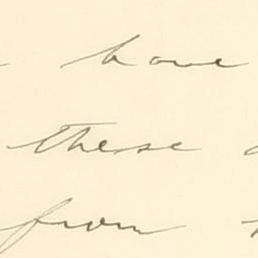 have
these
from